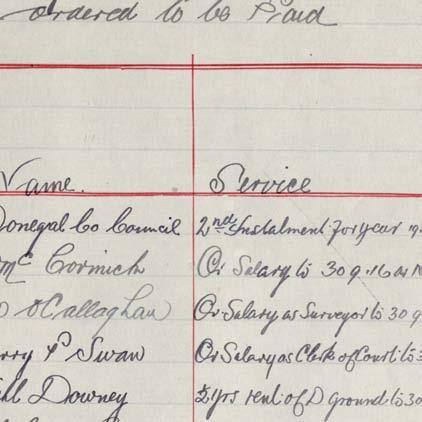 ordered to be Paid
Name. Service
Donegal Co Council 2nd Instalment for year 19
Mc Cormick Qr Salary to 30 9.16 as
O'Callaghan Qr Salary as Surveyor to 30 9
rry P Swan Qr Salary as Clerk of Court to 3
Downey ½ yrs rent of D ground to 30